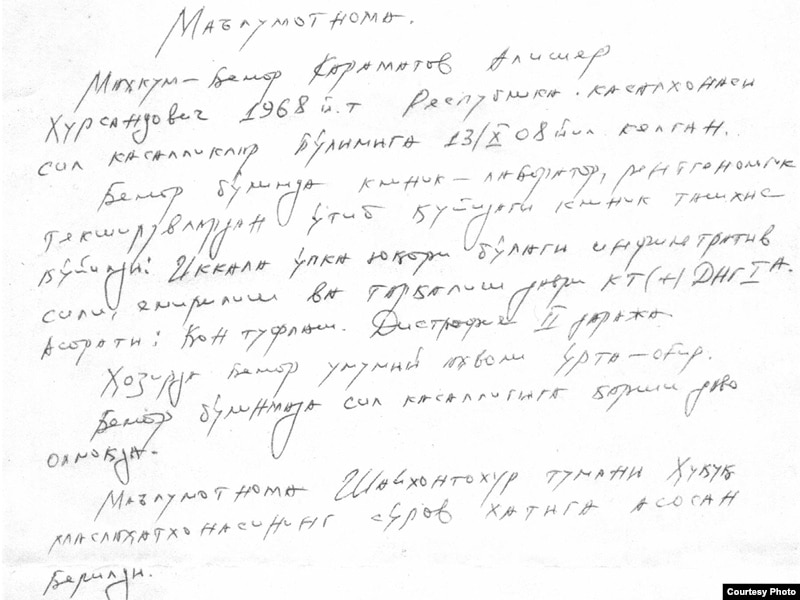 Маълумотнома.
Махкум – бемор Караматов Алишер
Хурсандович 1968 й.т Республика касалхонаси
сил касалликлар бўлимига 13/X 08 йил келган.
Бемор бўлимда клиник – лаборатор, рентгенологик
текширувлардан ўтиб қуйидаги клиник ташхис
қўйилди: Иккала ўпка юқори бўлаги инфильтратив
сили, емирилиш ва тарқалиш даври КТ(+) ДНГ IA.
Асорати: Қон туфлаш. Дистрофия II даража
Хозирда бемор умумий ахволи ўрта – оғир.
Бемор бўлиммизда сил касаллигига қарши даво
олмоқда.
Маълумотнома Шайхонтохур тумани Хуқуқ
маслахатхонасининг сўров хатига асосан
берилди.
Courtesy Photo